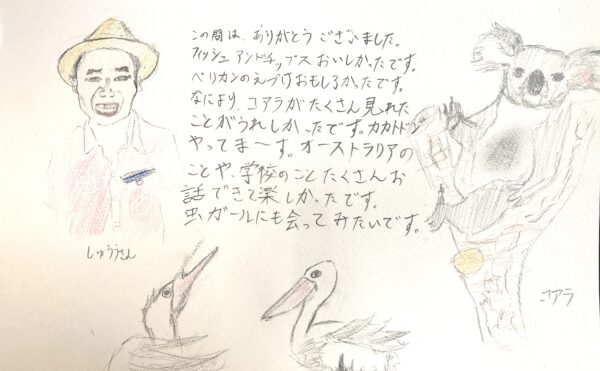 この間は、ありがとうございました。
フィッシュアンドチップスおいしかったです。
ペリカンのえづけおもしろかったです。
なにより、コアラがたくさん見れた
ことがうれしかったです。カカトドン
やってま〜す。オーストラリアの
ことや、学校のことたくさんお
話できて楽しかったです。
虫ガールにも会ってみたいです。
しゅうさん
コアラ